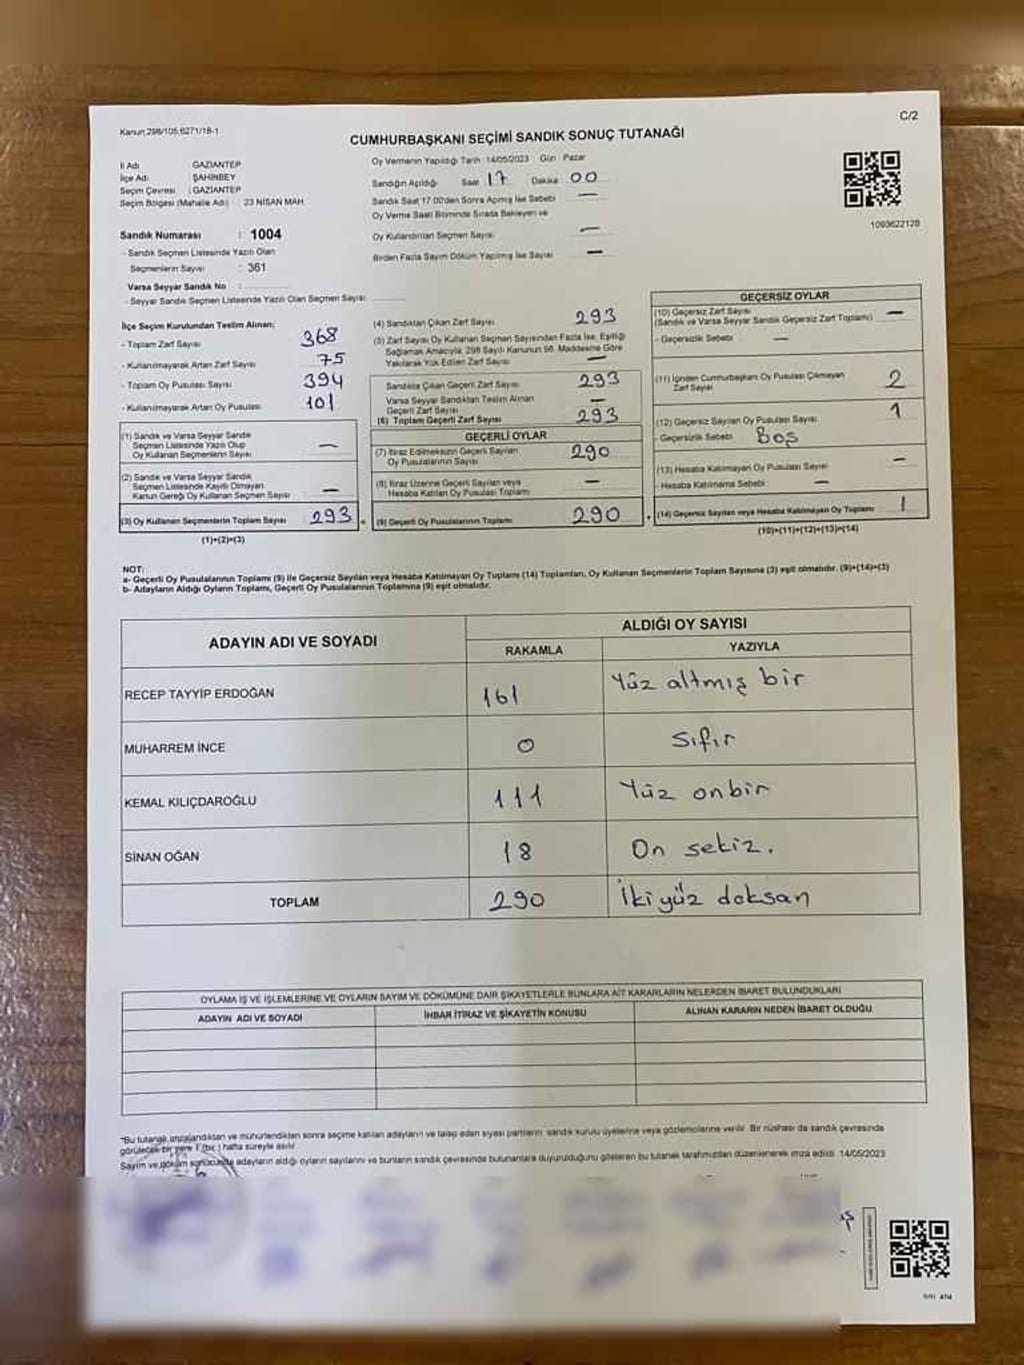 Kanun;298/105;6271/18-1
C/2
CUMHURBAŞKANI SEÇİMİ SANDIK SONUÇ TUTANAĞI
İl Adı GAZİANTEP
İlçe Adı ŞAHİNBEY
Seçim Çevresi : GAZİANTEP
Seçim Bölgesi (Mahalle Adı) : 23 NİSAN MAH.
Sandık Numarası : 1004
- Sandık Seçmen Listesinde Yazılı Olan
Seçmenlerin Sayısı : 361
Varsa Seyyar Sandık No :
- Seyyar Sandık Seçmen Listesinde Yazılı Olan Seçmen Sayısı:
Oy Vermenin Yapıldığı Tarih :14/05/2023 Gün : Pazar
Sandığın Açıldığı Saat 17 Dakika 00
Sandık Saat 17.00'den Sonra Açılmış İse Sebebi —
Oy Verme Saati Bitiminde Sırada Bekleyen ve
Oy Kullandırılan Seçmen Sayısı —
Birden Fazla Sayım Döküm Yapılmış İse Sayısı —
1093622128
İlçe Seçim Kurulundan Teslim Alınan;
- Toplam Zarf Sayısı 368
- Kullanılmayarak Artan Zarf Sayısı 75
- Toplam Oy Pusulası Sayısı 394
- Kullanılmayarak Artan Oy Pusulası 101
(1) Sandık ve Varsa Seyyar Sandık
Seçmen Listesinde Yazılı Olup
Oy Kullanan Seçmenlerin Sayısı —
(2) Sandık ve Varsa Seyyar Sandık
Seçmen Listesinde Kayıtlı Olmayan
Kanun Gereği Oy Kullanan Seçmen Sayısı —
(3) Oy Kullanan Seçmenlerin Toplam Sayısı 293
(1)+(2)=(3)
(4) Sandıktan Çıkan Zarf Sayısı 293
(5) Zarf Sayısı Oy Kullanan Seçmen Sayısından Fazla İse, Eşitliği
Sağlamak Amacıyla, 298 Sayılı Kanunun 98. Maddesine Göre
Yakılarak Yok Edilen Zarf Sayısı —
Sandıkta Çıkan Geçerli Zarf Sayısı 293
Varsa Seyyar Sandıktan Teslim Alınan
Geçerli Zarf Sayısı —
(6) Toplam Geçerli Zarf Sayısı 293
GEÇERLİ OYLAR
(7) İtiraz Edilmeksizin Geçerli Sayılan
Oy Pusulalarının Sayısı 290
(8) İtiraz Üzerine Geçerli Sayılan veya
Hesaba Katılan Oy Pusulası Toplamı —
(9) Geçerli Oy Pusulalarının Toplamı 290
GEÇERSİZ OYLAR
(10) Geçersiz Zarf Sayısı
(Sandık ve Varsa Seyyar Sandık Geçersiz Zarf Toplamı) —
- Geçersizlik Sebebi —
(11) İçinden Cumhurbaşkanı Oy Pusulası Çıkmayan
Zarf Sayısı 2
(12) Geçersiz Sayılan Oy Pusulası Sayısı 1
- Geçersizlik Sebebi Boş
(13) Hesaba Katılmayan Oy Pusulası Sayısı —
- Hesaba Katılmama Sebebi —
(14) Geçersiz Sayılan veya Hesaba Katılmayan Oy Toplamı 1
(10)+(11)+(12)+(13)=(14)
NOT:
a- Geçerli Oy Pusulalarının Toplamı (9) ile Geçersiz Sayılan veya Hesaba Katılmayan Oy Toplamı (14) Toplamları, Oy Kullanan Seçmenlerin Toplam Sayısına (3) eşit olmalıdır. (9)+(14)=(3)
b- Adayların Aldığı Oyların Toplamı, Geçerli Oy Pusulalarının Toplamına (9) eşit olmalıdır.
ADAYIN ADI VE SOYADI
ALDIĞI OY SAYISI
RAKAMLA YAZIYLA
RECEP TAYYİP ERDOĞAN 161 Yüz altmış bir
MUHARREM İNCE 0 Sıfır
KEMAL KILIÇDAROĞLU 111 Yüz onbir
SİNAN OĞAN 18 On sekiz.
TOPLAM 290 İkiyüz doksan
OYLAMA İŞ VE İŞLEMLERİNE VE OYLARIN SAYIM VE DÖKÜMÜNE DAİR ŞİKAYETLERLE BUNLARA AİT KARARLARIN NELERDEN İBARET BULUNDUKLARI
ADAYIN ADI VE SOYADI İHBAR İTİRAZ VE ŞİKAYETİN KONUSU ALINAN KARARIN NEDEN İBARET OLDUĞU
*Bu tutanak imzalandıktan ve mühürlendikten sonra seçime katılan adayların ve talep eden siyasi partilerin sandık kurulu üyelerine veya gözlemcilerine verilir. Bir nüshası da sandık çevresinde
görülecek bir yere 1 (bir) hafta süreyle asılır.
Sayım ve döküm sonucunda adayların aldığı oyların sayılarını ve bunların sandık çevresinde bulunanlara duyurulduğunu gösteren bu tutanak tarafımızdan düzenlenerek imza edildi. 14/05/2023